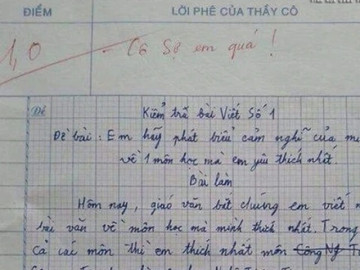 ĐIỂM
LỜI PHÊ CỦA THẦY CÔ
1,0
- Cô Sợ em quá !
Đề
Kiểm tra bài Viết Số 1
Đề bài : Em hãy phát biểu cảm nghĩ của
về 1 môn học mà em yêu thích nhất.
Bài làm
Hôm nay, giáo văn bắt chúng em viết
bài văn về môn học mà mình thích nhất. Trong
cả các môn thì em thích nhất môn Công Ng